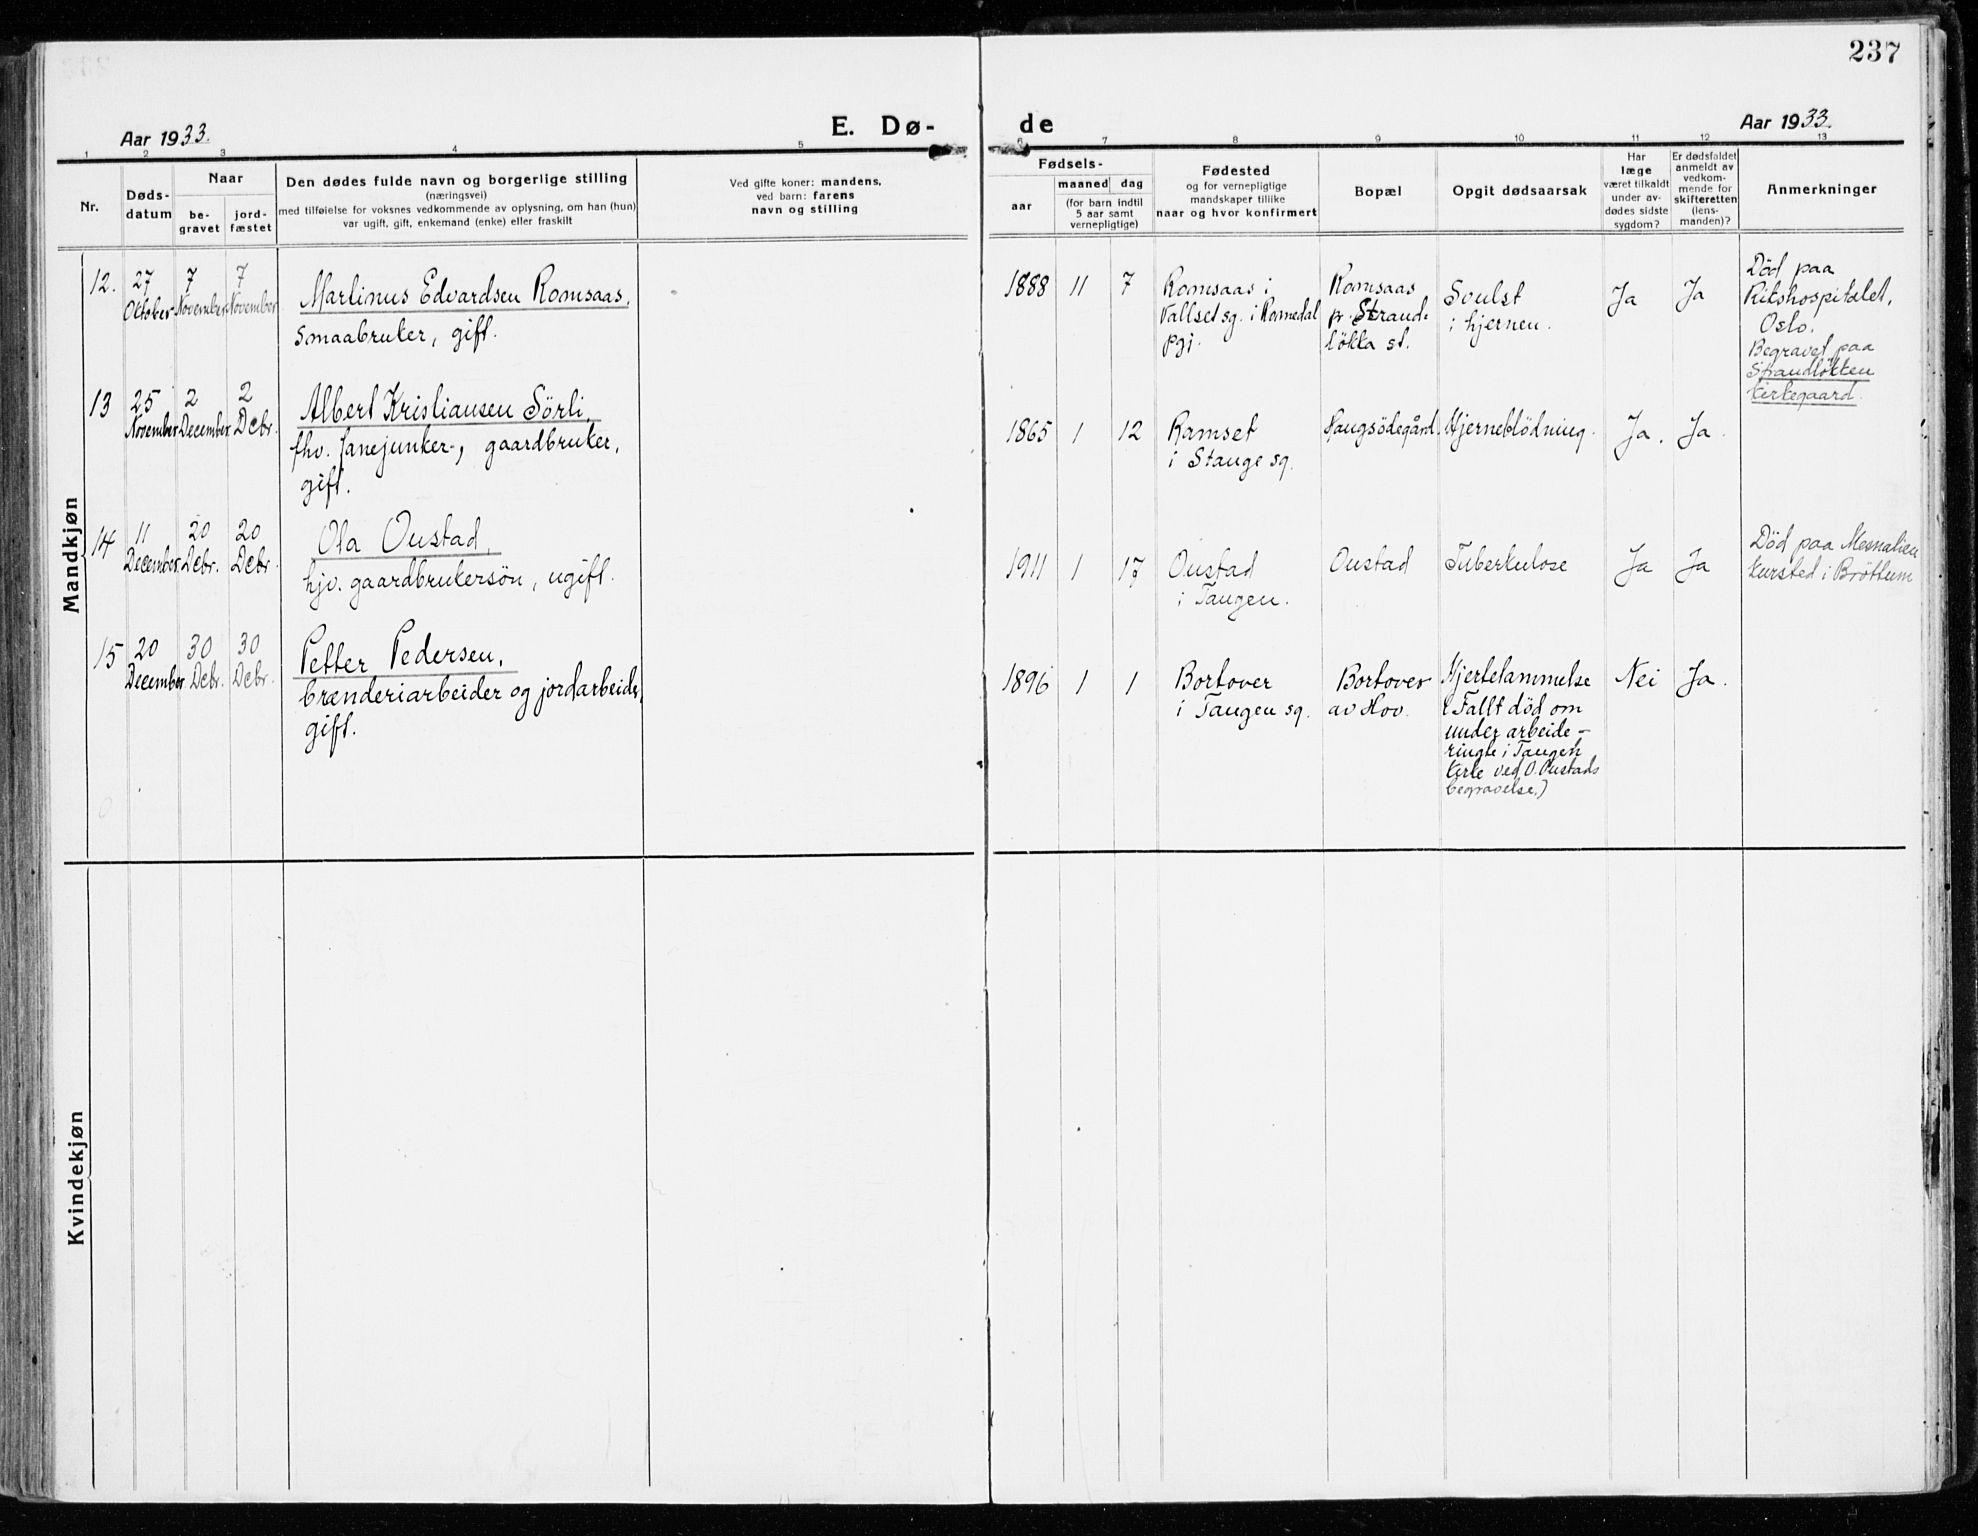 237
Aar 1933.
E. Dø-
de
Aar 1933.
1 2 3 4 5 6 7 8 9 10 11 12 13
Nr.
Døds-
datum
Naar
be-
gravet
jord-
fæstet
Den dødes fulde navn og borgerlige stilling
(næringsvei)
med tilføielse for voksnes vedkommende av oplysning, om han (hun)
var ugift, gift, enkemand (enke) eller fraskilt
Ved gifte koner: mandens,
ved barn: farens
navn og stilling
Fødsels-
aar
maaned dag
(for barn indtil
5 aar samt
vernepligtige)
Fødested
og for vernepligtige
mandskaper tillike
naar og hvor konfirmert
Bopæl
Opgit dødsaarsak
Har
læge
været tilkaldt
under av-
dødes sidste
sygdom?
Er dødsfaldet
anmeldt av
vedkom-
mende for
skifteretten
(lens-
manden)?
Anmerkninger
Mandkjøn
12.
27
Oktober
7
November
7
November
Martinus Edvardsen Romsaas,
smaabruker, gift.
1888 11 7
Romsaas i
Vallset sg. i Romedal
pgj.
Romsaas
p. Strand-
løkka st.
Svulst
i hjernen.
Ja
Ja
Død paa
Rikshospitalet,
Oslo.
Begravet paa
Strandløkken
kirkegaard.
13
25
November
2
December
2
Debr.
Albert Kristiansen Sörli,
fhv. fanejunker, gaardbruker,
gift.
1865 1 12
Ramset
i Stange sg.
Haugsödegård.
Hjerneblödning.
Ja.
Ja.
14
11
December
20
Debr.
20
Debr.
Ola Oustad,
hjv. gaardbrukersön, ugift.
1911 1 17
Oustad
i Tangen.
Oustad
Tuberkulose
Ja
Ja
Död paa Mesnalien
kursted i Bröttum
15
20
December
30
Debr.
30
Debr.
Petter Pedersen,
brænderiarbeider og jordarbeider,
gift.
1896 1 1
Bortover
i Tangen sg.
Bortover
av Hov.
Hjertelammelse
(Fallt död om
under arbeide -
ringte i Tangen
kirke ved O. Oustads
begravelse.)
Nei
Ja.
Kvindekjøn